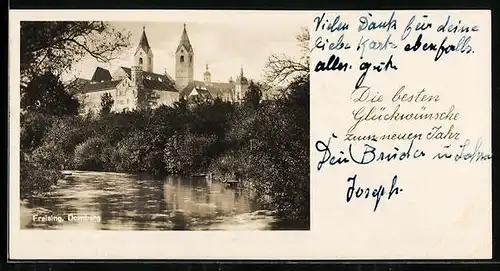 Vielen Dank für deine
liebe Karte ebenfalls
alles gute
Die besten
Glückwünsche
zum neuen Jahr
Dein Bruder u.
Joseph.
Freising, Domberg